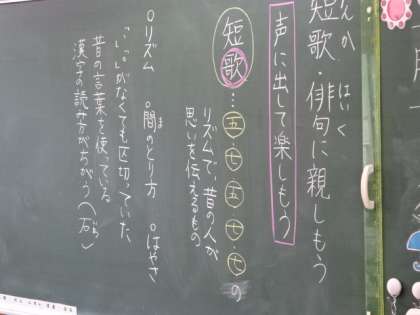 短歌・俳句に親しもう
たんか はいく
声に出して楽しもう
短歌…五・七・五・七・七の
リズムで、昔の人が
思いを伝えるもの
○リズム ○間のとり方 ○はやさ
ま
「、」「。」がなくても区切っていた
昔の言葉を使っている
漢字の読み方がちがう